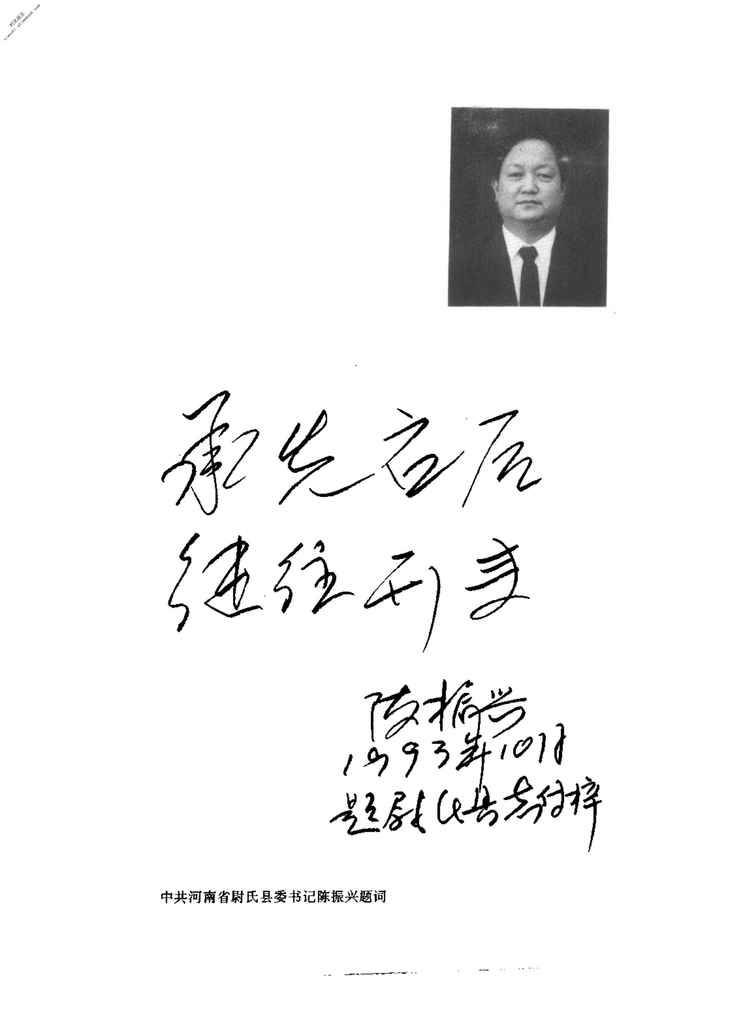 承先启后
继往开来
陈振兴
1993年10月
题尉氏县志付梓
中共河南省尉氏县委书记陈振兴题词